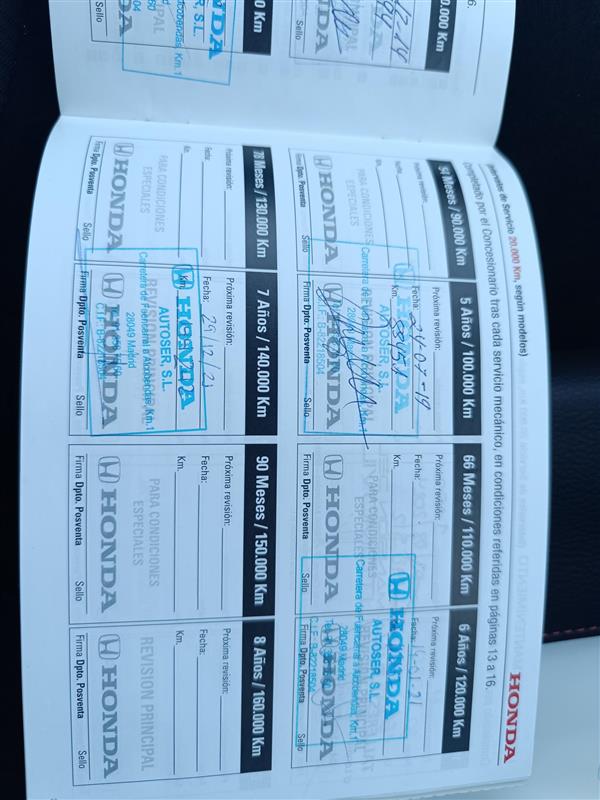 HONDA
Intervalos de Servicio 20.000 Km, según modelos)
Completado por el Concesionario tras cada servicio mecánico, en condiciones referidas en páginas 13 a 16.
54 Meses / 90.000 Km
Próxima revisión:
Fecha:
Km.
PARA CONDICIONES
ESPECIALES
HONDA
Firma Dpto. Posventa
Sello
5 Años / 100.000 Km
Próxima revisión:
Fecha: 24-07-19
Km.
HONDA
AUTOSER, S.L.
Carretera de Fuencarral a Alcobendas, Km.1
HONDA
Firma Dpto. Posventa
Sello
66 Meses / 110.000 Km
Próxima revisión:
Fecha:
Km.
PARA CONDICIONES
ESPECIALES
HONDA
Firma Dpto. Posventa
Sello
6 Años / 120.000 Km
Próxima revisión:
Fecha:
HONDA
AUTOSER, S.L.
Carretera de Fuencarral a Alcobendas, Km.1
28049 Madrid
C.I.F. B-82218504
HONDA
Firma Dpto. Posventa
Sello
78 Meses / 130.000 Km
Próxima revisión:
Fecha:
Km.
PARA CONDICIONES
ESPECIALES
HONDA
Firma Dpto. Posventa
Sello
7 Años / 140.000 Km
Próxima revisión:
Fecha: 29/12/21
Km.
HONDA
AUTOSER, S.L.
Carretera de Fuencarral a Alcobendas, Km.1
28049 Madrid
C.I.F. B-82218504
HONDA
Firma Dpto. Posventa
Sello
90 Meses / 150.000 Km
Próxima revisión:
Fecha:
Km.
PARA CONDICIONES
ESPECIALES
HONDA
Firma Dpto. Posventa
Sello
8 Años / 160.000 Km
Próxima revisión:
Fecha:
Km.
REVISION PRINCIPAL
HONDA
Firma Dpto. Posventa
Sello